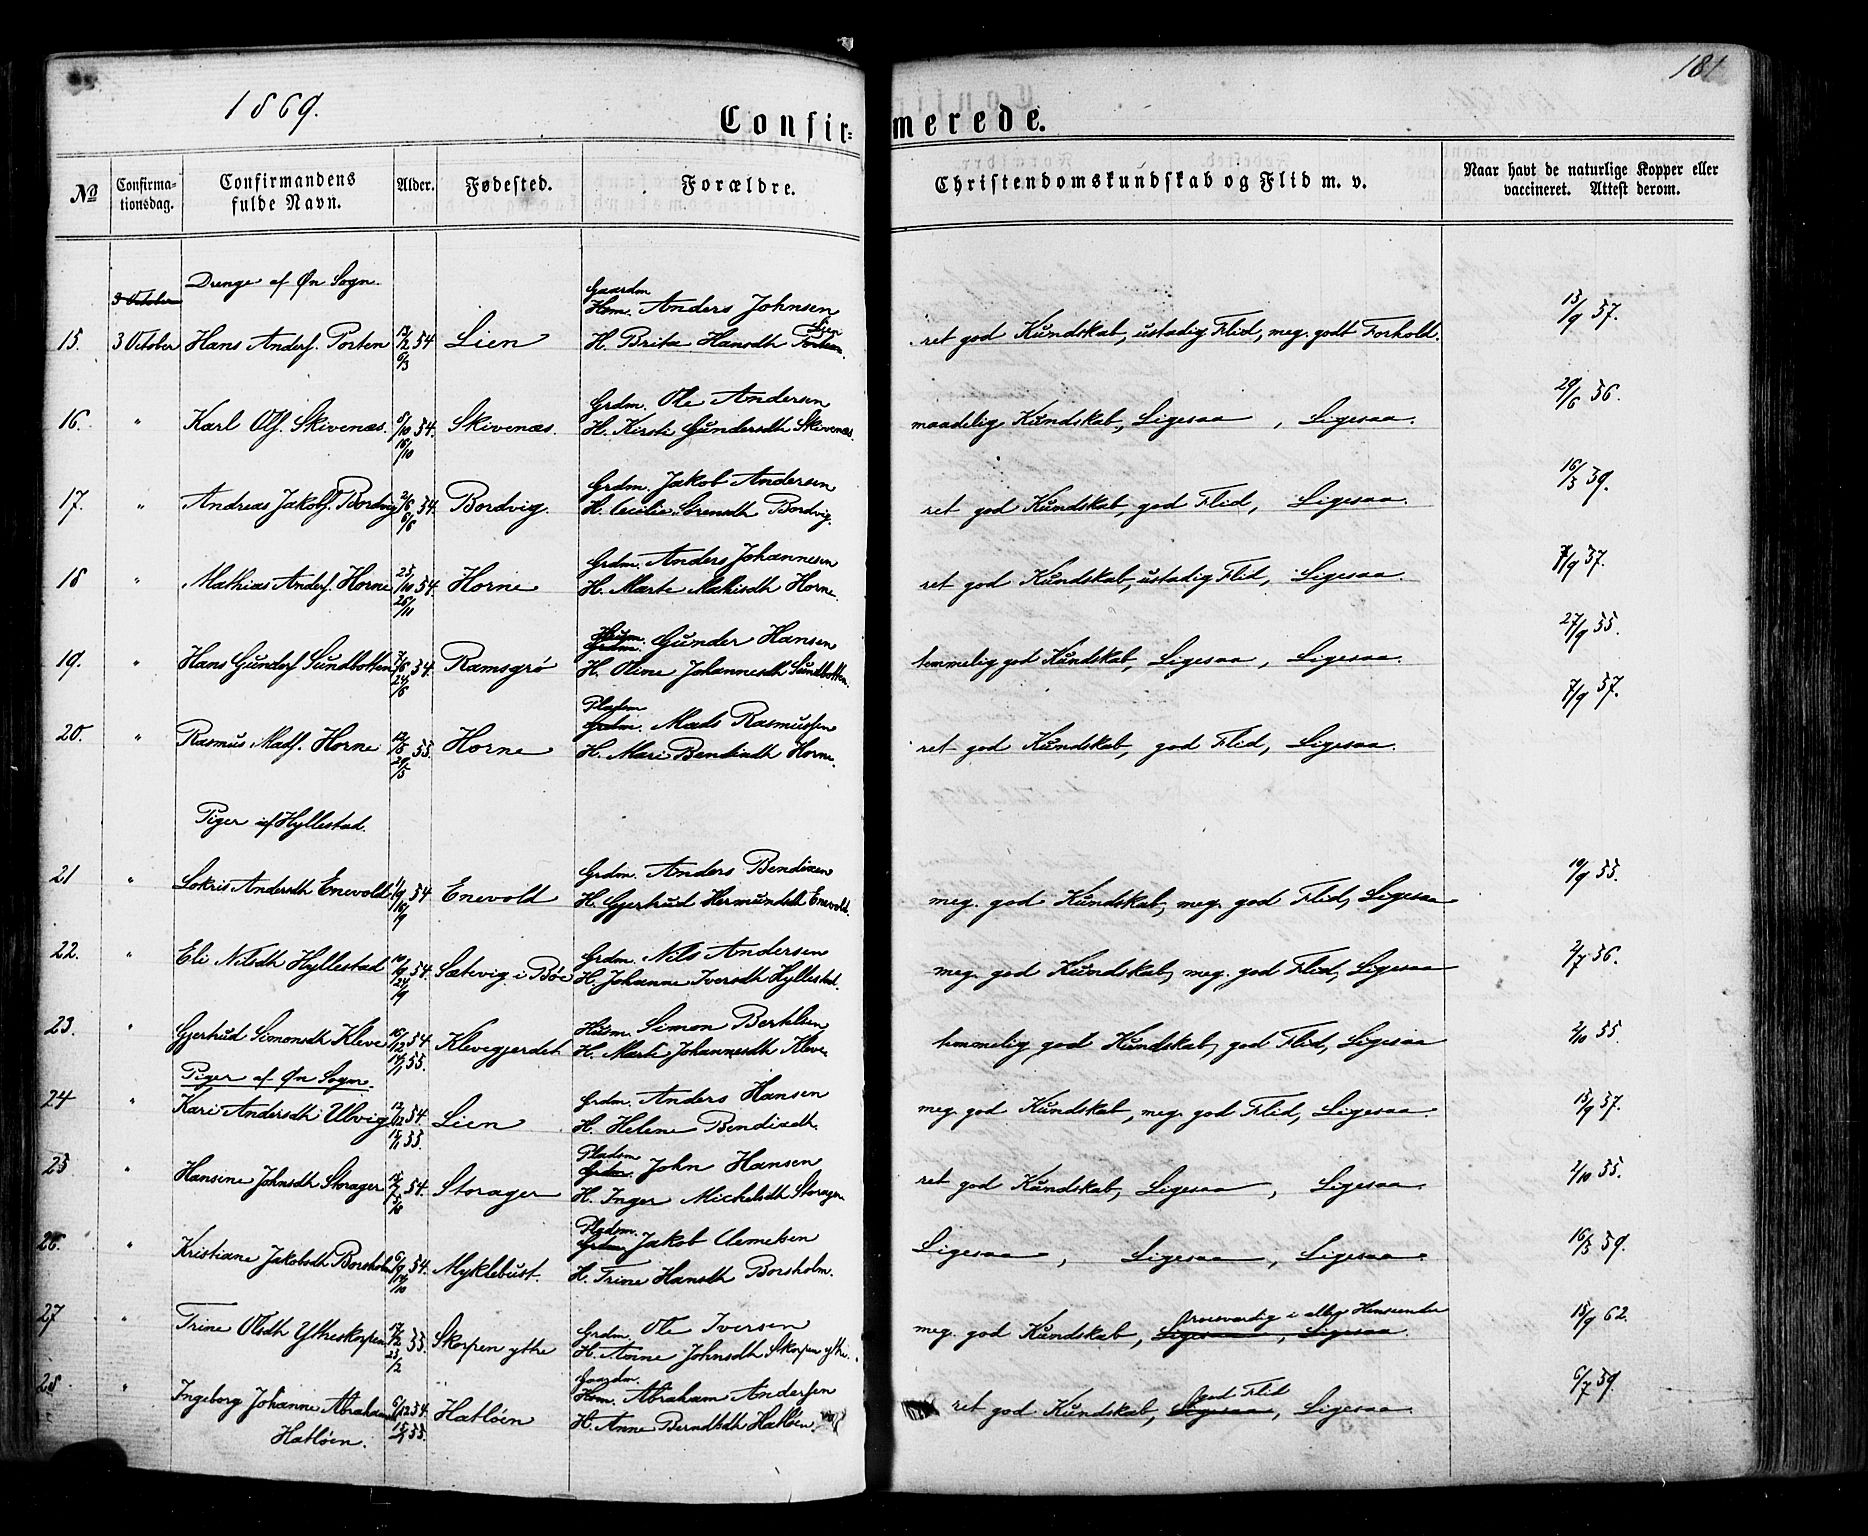 1869.
181
Confir=
merede.
No
Confirma-
tionsdag.
Confirmandens
fulde Navn.
Alder.
Fødested.
Forældre.
Christendomskundskab og Flid m. v.
Naar havt de naturlige Kopper eller
vaccineret. Attest derom.
Drenge af Øn Sogn.
3 October
Gaardm
Hsm. Anders Johnsen
15. 3 October Hans Anders. Porten 12/2 54 Lien H. Brita Hansdh Porten. Lien ret god Kundskab, ustadig Flid, meg. godt Forhold. 15/9 57.
6/3
Grdm. Ole Andersen
16. " Karl Ols. Skivenæs 8/10 54. Skivenæs. H. Kirsti Gundersdh Skivenæs. maadelig Kundskab, Ligesaa, Ligesaa. 29/6 56.
Grdm. Jakob Andersen
17. " Andreas Jakobs. Bordvig 2/6 54. Bordvig. H. Cecilie Sørensdh Bordvig. ret god Kundskab, god Flid, Ligesaa. 16/3 59.
Grdm. Anders Johannesen
18 " Mathias Anders. Horne 23/10 54. Horne H. Marte Mathisdh Horne. ret god Kundskab, ustadig Flid, Ligesaa. 7/9 57.
Husm.
Grdm. Gunder Hansen
19. " Hans Gunders Sundbotten 54. Ramsgrø H. Oline Johannesdh Sundbotten. temmelig god Kundskab, Ligesaa, Ligesaa. 27/9 55.
Pladsm
Grdm. Mads Rasmussen
20. " Rasmus Mads. Horne 12/5 55. Horne H. Mari Bendixdh Horne. ret god Kundskab, god Flid, Ligesaa. 7/9 57.
29/5
Piger af Hyllestad.
Grdm. Anders Bendixen
21 " Lokris Andersdh Enevold 1/9 54 Enevold H. Gjertrud Hermundsdh Enevold. meg. god Kundskab, meg. god Flid, Ligesaa 19/9 55.
Grdm. Nils Andersen
22. " Eli Nilsdh Hyllestad 10/9 54. Sætevig i Bøe H. Johanne Iversdh Hyllestad. meg. god Kundskab, meg. god Flid, Ligesaa 2/7 56.
24/9
Husm. Simon Berthelsen
23. " Gjertrud Simonsdh Kleve 16/12 54 Klevegjerdet H. Marte Johannesdh Kleve temmelig god Kundskab, god Flid, Ligesaa 2/10 55.
55.
Piger af Øn Sogn.
Grdm. Anders Hansen
24 " Kari Andersdh Ulvig 12/12 54. Lien H. Helene Bendixdh. meg. god Kundskab, meg. god Flid, Ligesaa. 15/9 57.
15/1 55
Pladsm
Grdm. John Hansen
25 " Hansine Johnsdh Storager 54. Storager H. Inger Michelsdh Storager ret god Kundskab, Ligesaa, Ligesaa. 2/10 55.
Pladsm.
Grdm. Jakob Clemetsen
26. " Kristiane Jakobsdh Borsholm 6/9 54. Myklebust. H. Trine Hansdh Borsholm. Ligesaa, Ligesaa, Ligesaa. 16/3 59.
Grdm. Ole Iversen
Roesværdig i alle Henseender
27 " Trine Olsdh Ytreskorpen 55. Skorpen ytre H. Anne Johnsdh Skorpen ytre. meg. god Kundskab, Ligesaa, Ligesaa. 15/9 62.
Gaardm.
Hsm. Abraham Andersen
god Flid
28. " Ingeborg Johanne Abrahamsd 6/12 54. Hatløen H. Anne Berndtsdh Hatløen. ret god Kundskab, Ligesaa, Ligesaa. 6/7 59.
Hatløen. 55.